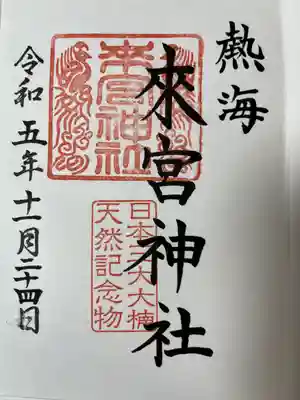 熱海
來宮神社
来宮神社
日本三大大楠
天然記念物
令和五年十一月二十四日